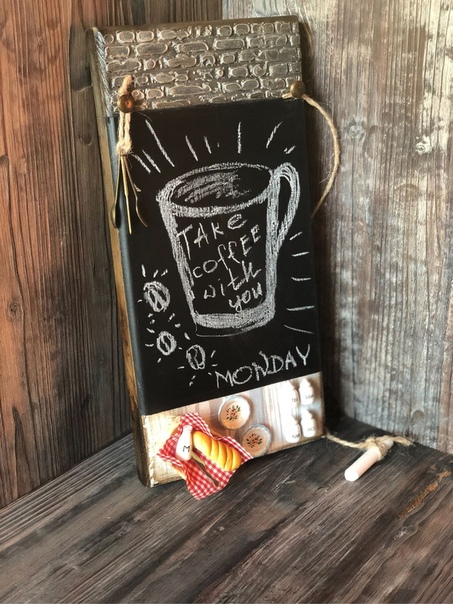 TAKe
coffee
with
you
MONDAY
M